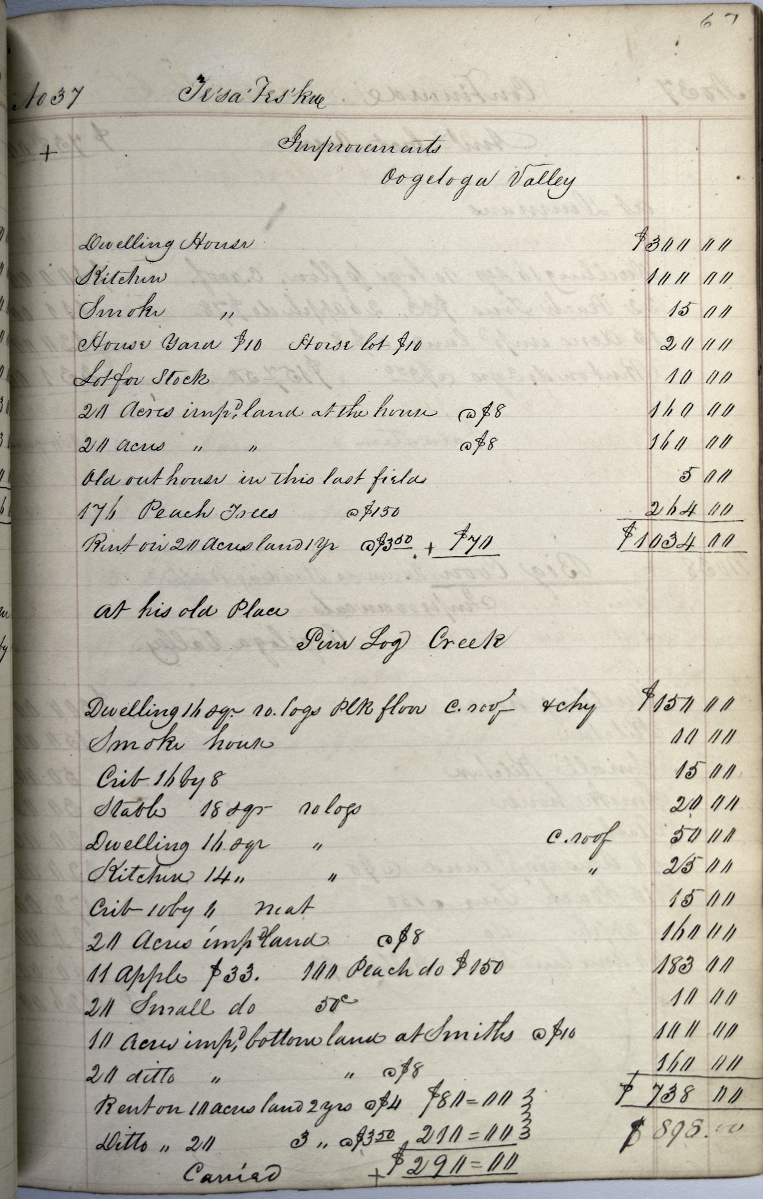 67
No 37 Te'sa'Tes'kee
+ Improvements
Oogeloga Valley
Dwelling House $300 00
Kitchen 100 00
Smoke " 15 00
House Yard $10 Horse lot $10 20 00
Lot for Stock 10 00
20 Acres imp.d land at the house @ $8 160 00
20 acres " " @ $8 160 00
Old out house in this last field 5 00
176 Peach Trees @ $150 264 00
Rent on 20 Acres land 1 yr @ $3 50 + $70 $1034 00
At his old Place
Pine Log Creek
Dwelling 16 sqr ro. logs Plk floor c. roof & chy $150 00
Smoke house 10 00
Crib 16 by 8 15 00
Stable 18 sqr ro logs 20 00
Dwelling 16 sqr " c. roof 50 00
Kitchen 14 " " " 25 00
Crib 10 by " neat 15 00
20 Acres imp.d land @ $8 160 00
11 Apple $33. 100 Peach do $150 183 00
20 Small do 50c 10 00
10 Acres imp.d bottom land at Smiths @ $10 100 00
20 ditto " " @ $8 160 00
Rent on 10 acres land 2 yrs @ $4 $80=00 $738 00
Ditto " 20 3 " @ $3 50 210=00 $898.00
Carried + $290=00